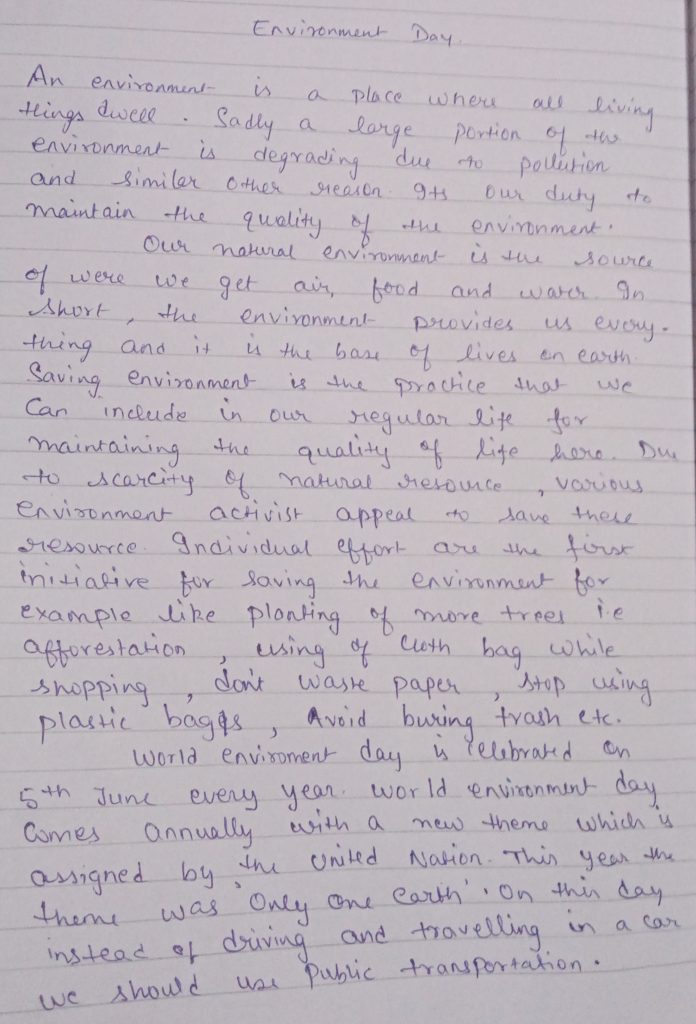 Environment Day.
An environment is a place where all living
things dwell. Sadly a large portion of the
environment is degrading due to pollution
and similar other reason. Its our duty to
maintain the quality of the environment.
Our natural environment is the source
of were we get air, food and water. In
short, the environment provides us every-
thing and it is the base of lives on earth.
Saving environment is the practice that we
Can include in our regular life for
maintaining the quality of life here. Due
to scarcity of natural resource, various
environment activist appeal to save these
resource. Individual effort are the first
initiative for saving the environment for
example like planting of more trees i.e
afforestation, using of cloth bag while
shopping, don't waste paper, stop using
plastic bags, Avoid buring trash etc.
World enviroment day is celebrated on
5th June every year. World environment day
Comes annually with a new theme which is
assigned by the United Nation. This year the
theme was 'Only one earth'. On this day
instead of driving and travelling in a car
we should use public transportation.